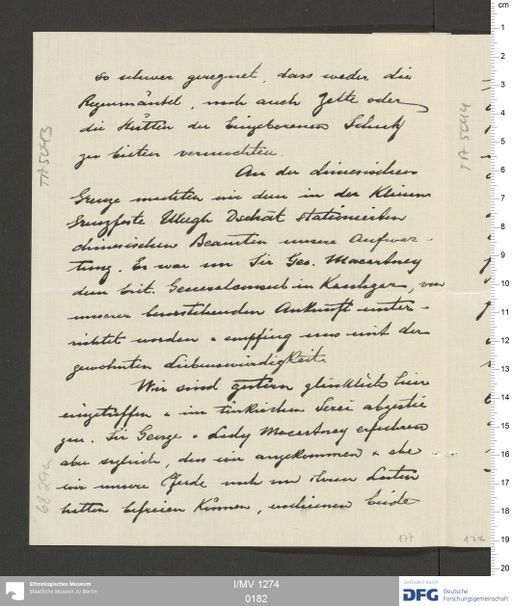 so schwer geregnet, dass weder die
Regenmäntel, noch auch Zelte oder
die Hütten der Eingeborenen Schutz
zu bieten vermochten.
An der chinesischen
Grenze machten wir dem in der kleinen
Grenzfeste Ulugh Dschät stationierten
chinesischen Beamten unsere Aufwar-
tung. Er war von Sir Geo. Macartney
dem brit. Generalconsul in Kaschgar, von
unserer bevorstehenden Ankunft unter-
richtet worden & empfing uns mit der
gewohnten Liebenswürdigkeit.
Wir sind gestern glücklich hier
eingetroffen & im türkischen Serai abgestie
gen. Sir George & Lady Macartney erfuhren
aber sogleich, dass wir angekommen & ehe
wir unsere Pferde noch von ihren Lasten
hatten befreien können, erschienen beide
TA 5093
TA 5094
68 29a
177
Ethnologisches Museum
Staatliche Museen zu Berlin
I/MV 1274
0182
Gefördert durch
DFG Deutsche
Forschungsgemeinschaft
cm
1
2
3
4
5
6
7
8
9
10
11
12
13
14
15
16
17
18
19
20